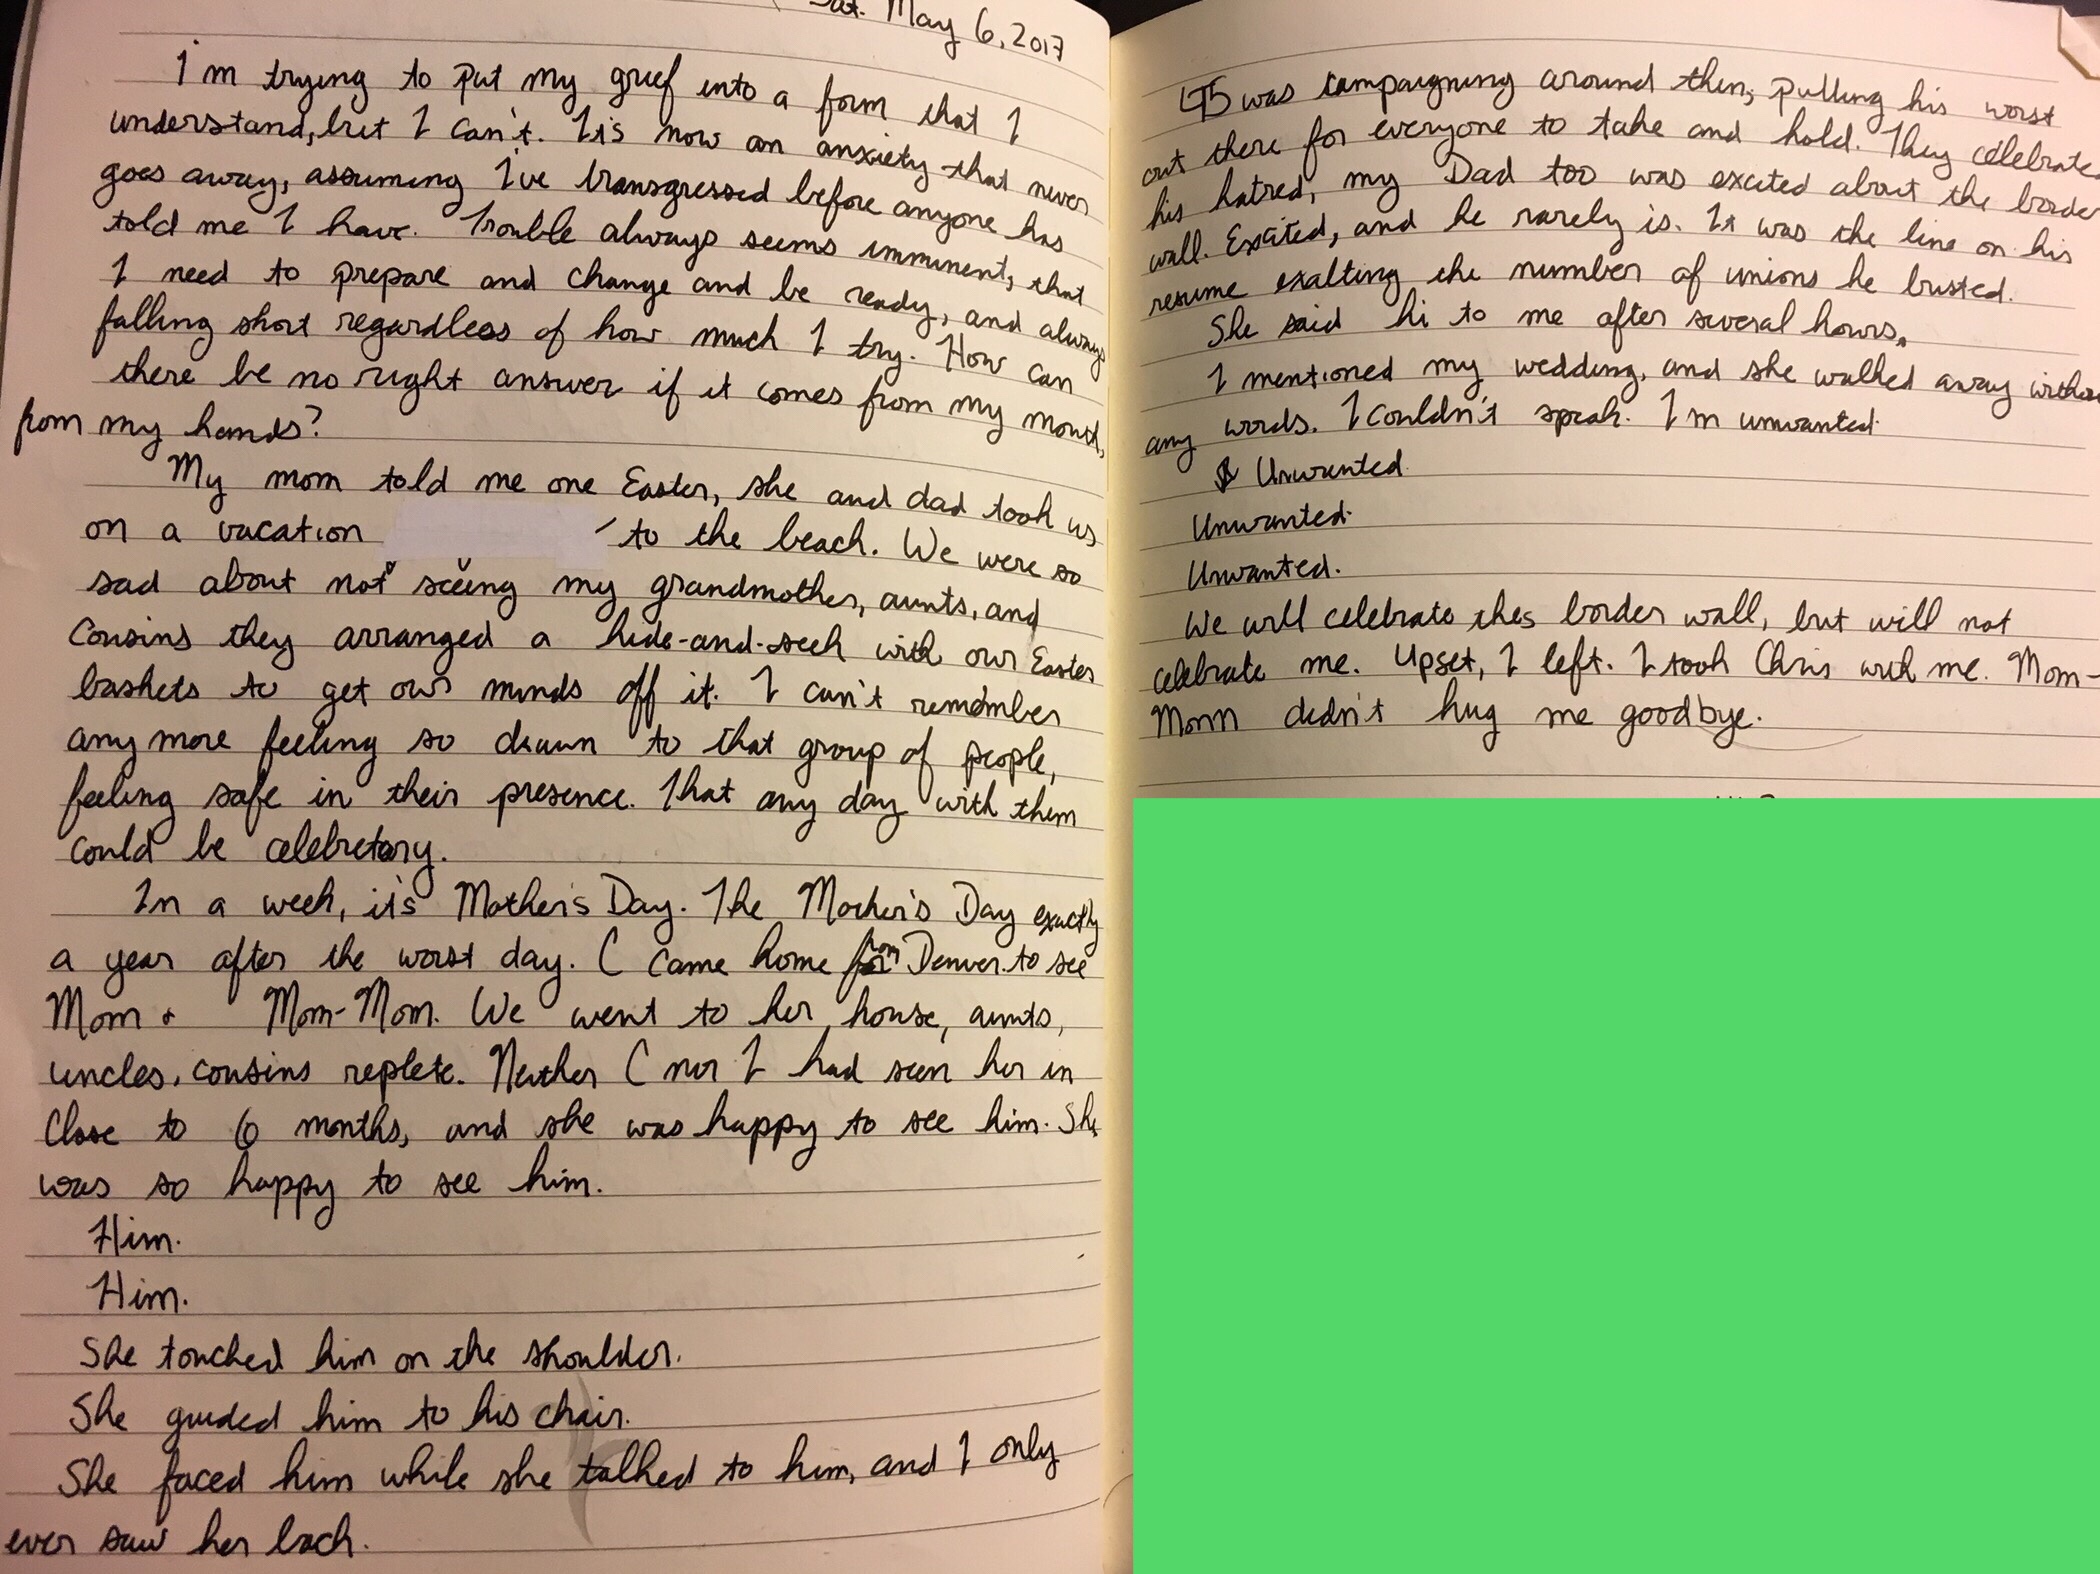 Sat. May 6, 2017
I'm trying to put my grief into a form that I
understand, but I can't. It's now an anxiety that never
goes away, assuming I've transgressed before anyone has
told me I have. Trouble always seems imminent, that
I need to prepare and change and be ready, and always
falling short regardless of how much I try. How can
there be no right answer if it comes from my mouth,
from my hands?
My mom told me one Easter, she and dad took us
on a vacation to the beach. We were so
sad about not seeing my grandmother, aunts, and
cousins they arranged a hide-and-seek with our Easter
baskets to get our minds off it. I can't remember
any more feeling so drawn to that group of people,
feeling safe in their presence. That any day with them
could be celebretory.
In a week, it's Mother's Day. The Mother's Day exactly
a year after the worst day. C came home from Denver to see
Mom + Mom-Mom. We went to her house, aunts,
uncles, cousins replete. Neither C nor I had seen her in
close to 6 months, and she was happy to see him. She
was so happy to see him.
Him.
Him.
She touched him on the shoulder.
She guided him to his chair.
She faced him while she talked to him, and I only
ever saw her back.
45 was campaigning around then, pulling his worst
out there for everyone to take and hold. They celebrate
his hatred, my Dad too was excited about the border
wall. Excited, and he rarely is. It was the line on his
resume exalting the number of unions he busted.
She said hi to me after several hours.
I mentioned my wedding, and she walked away without
any words. I couldn't speak. I'm unwanted.
Unwanted
Unwanted.
Unwanted.
We will celebrate this border wall, but will not
celebrate me. Upset, I left. I took Chris with me. Mom-
Mom didn't hug me goodbye.